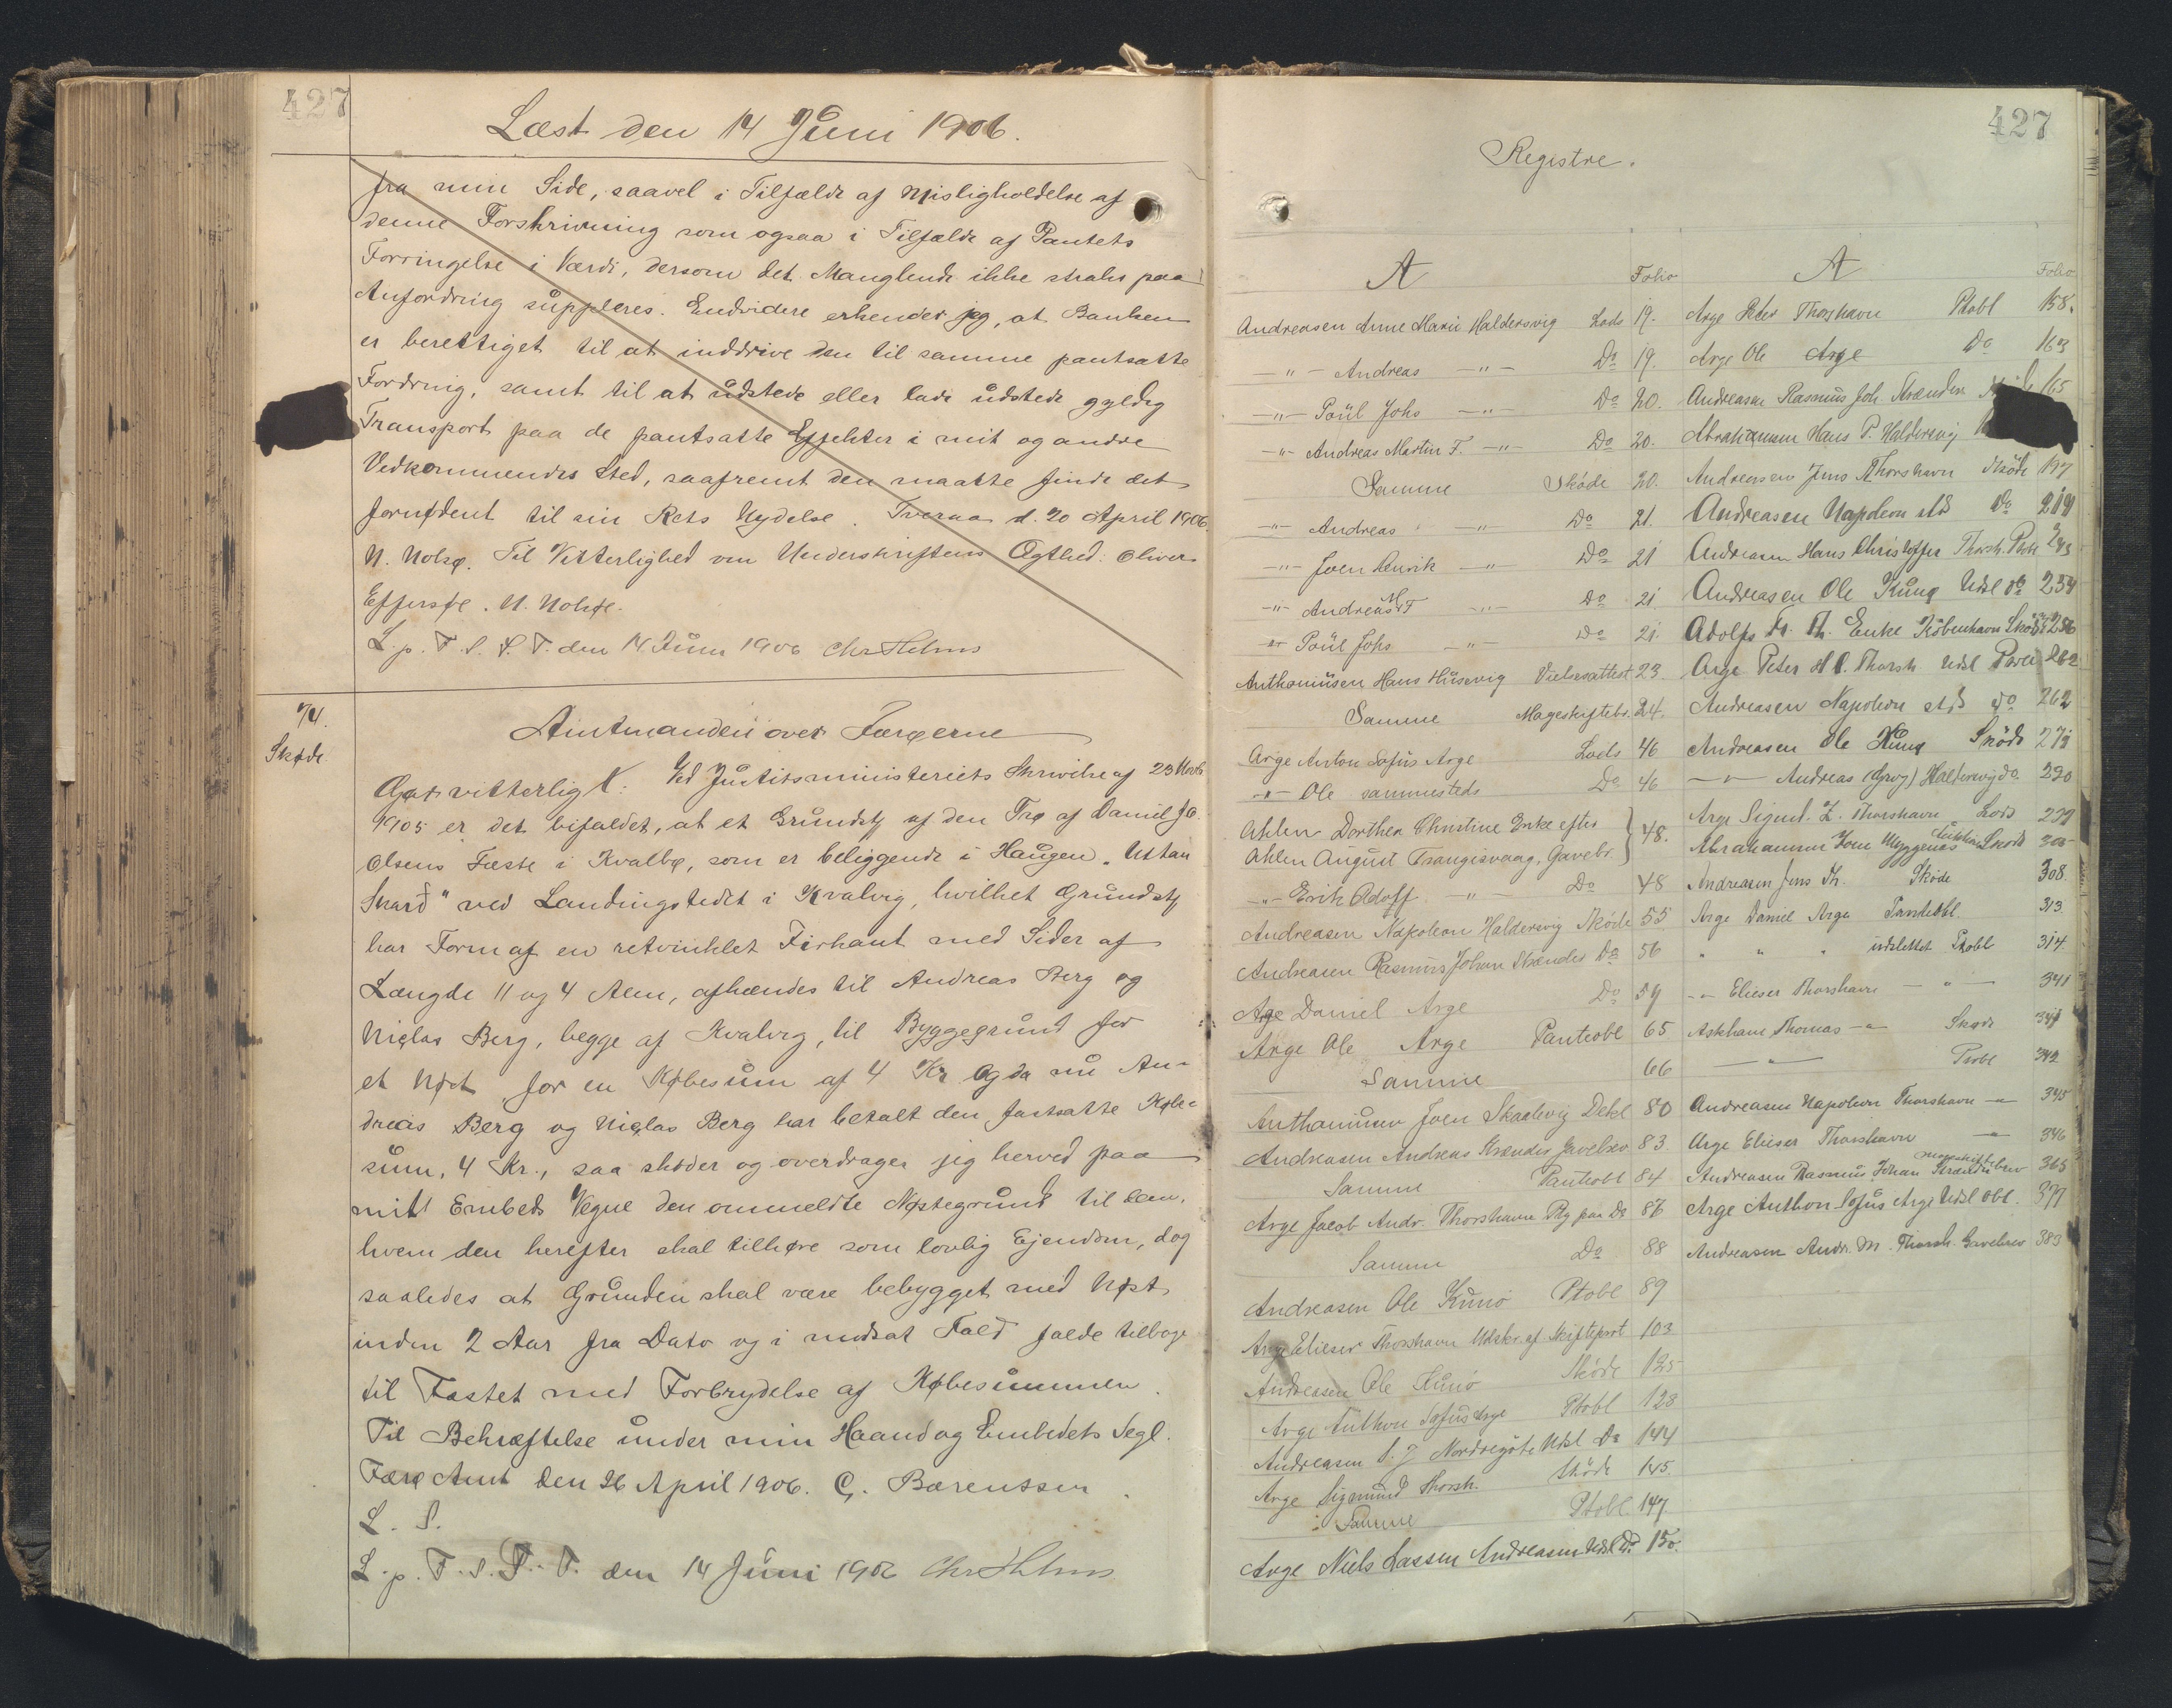 427
Læst den 14 Juni 1906.
fra min Side, saavel i Tilfælde af Misligholdelse af
denne Forskrivning som ogsaa i Tilfælde af Pantets
Forringelse i Værdi, dersom det Manglende ikke straks paa
Anfordring suppleres. Endvidere erkender jeg, at Banken
er berettiget til at inddrive den til samme pantsatte
Fordring, samt til at udstede eller lade udstede gyldig
Transport paa de pantsatte Effekter i mit og andre
Vedkommendes Sted, saafremt den maatte finde det
fornødent til sin Rets Nydelse. Tveraa d. 20 April 1906.
N. Nolsø. Til Vitterlighed om Underskriftens Ægthed: Oliver
Effersøe. N. Nolsøe.
L. p. F. S. S. T. den 14 Juni 1906 Chr Helms
74.
Skøde.
Amtmanden over Færøerne
Gør vitterligt: Ved Justitsministeriets Skrivelse af 23 Novb.
1905 er det bifaldet, at et Grundst. af den Frø af Daniel Jo.
Olsens Fæste i Kvalbø, som er beliggende i Haugen "Uttan
Skard" ved Landingstedet i Kvalvig, hvilket Grundst.
har Form af en retvinklet Firkant med Sider af
Længde 11 og 4 Alen, afhændes til Andreas Berg og
Niclas Berg, begge af Kvalvig, til Byggegrund for
et Nøst for en Købesum af 4 Kr. Og da nu An-
dreas Berg og Niclas Berg har betalt den fastsatte Købe-
sum, 4 Kr., saa skøder og overdrager jeg herved paa
mit Embeds Vegne den ommeldte Nøstegrund til dem,
hvem den herefter skal tilhøre som lovlig Ejendom, dog
saaledes at Grunden skal være bebygget med Nøst
inden 2 Aar fra Dato og i modsat Fald falde tilbage
til Fæstet med Forbrydelse af Købesummen.
Til Bekræftelse under min Haand og Embedets Segl.
Færø Amt den 26 April 1906. C. Bærentsen.
L. S.
L. p. F. S. S. T. den 14 Juni 1906 Chr Helms
427
Registre.
A Folio
Andreasen Anne Marie Haldersvig Lods 19.
—"— Andreas —"— Do 19.
—"— Poül Johs —"— Do 20.
—"— Andreas Martin F. —"— Do 20.
Samme Skøde 20.
—"— Andreas —"— Do 21.
—"— Joen —"— Do 21
—"— Andreas M. F —"— Do 21
—"— Poül Johs —"— Do 21.
Anthoniusen Hans Husevig Vielsesattest 23.
Samme Mageskiftebr. 24.
Arge Anton Sofus Arge Lods 46
—"— Ole sammesteds Do 46
Ahlen Dorthea Christine Enke efter
Ahlen August Trangisvaag, Gavebr. } 48.
—"— Erik Adolf —"— Do 48
Andreasen Napoleon Haldersvig Skøde 55
Andreasen Rasmus Johan Strendes Do 56
Arge Daniel Arge Do 59
Arge Ole Arge Panteobl 65
Samme 66
Anthoniusen Joen Skaalevig Dekl 80
Andreasen Andreas Strendes Gavebrev 83.
Samme Panteobl 84
Arge Jacob Andr. Thorshavn Ptg paa Do 87
Samme Do 88
Andreasen Ole Kunø Ptobl 89
Arge Elieser Thorshavn Udskr. af Skifteprot 103
Andreasen Ole Kunø Skøde 125
Arge Anthon Sofus Arge Ptobl 128
Andreasen S. J Nordregøte Udsl Do 144
Arge Sigmund Thorsh. Skøde 145.
Samme Ptobl 147.
Arge Niels Lassen Andreasen Udsl Do 150.
A Folio
Arge Peter Thorshavn Ptobl 158.
Arge Ole Arge Do 163
Andreasen Rasmus Joh. Strender 165
Abrahamsen Hans P. Haldersvig
Andreasen Jens Thorshavn Skøde 197
Andreasen Napoleon sts Do 219
Andreasen Hans Christoffer Thorsh. Ptobl 243
Andreasen Ole Kunø Udsl do 254
Adolfs Fr. Th. Enke København Skøde 256
Arge Peter H. C. Thorsh. Udsl Panteo 262
Andreasen Napoleon sts do 262
Andreasen Ole Kunø Skøde 273
—"— Andreas (Grog) Haldersvig do. 290
Arge Sigmd. Z. Thorshavn Lods 299
Abrahamsen Joen Myggenæs Skøde 305
Andreasen Jens Th. Skøde 308.
Arge Daniel Arge Panteobl. 313.
" " " udslettet Ptobl 314.
—"— Elieser Thorshavn —"— 341
Askham Thomas —"— Skøde 341
—"— Ptobl 342
Andreasen Napoleon Thorshavn —"— 345
Arge Elieser Thorshavn —"— 346
Andreasen Rasmus Johan Strender Mageskiftebrev 365
Arge Anthon Sofus Arge Udsl obl. 377
Andreasen Andr. M. Thorsh. Gavebrev 383